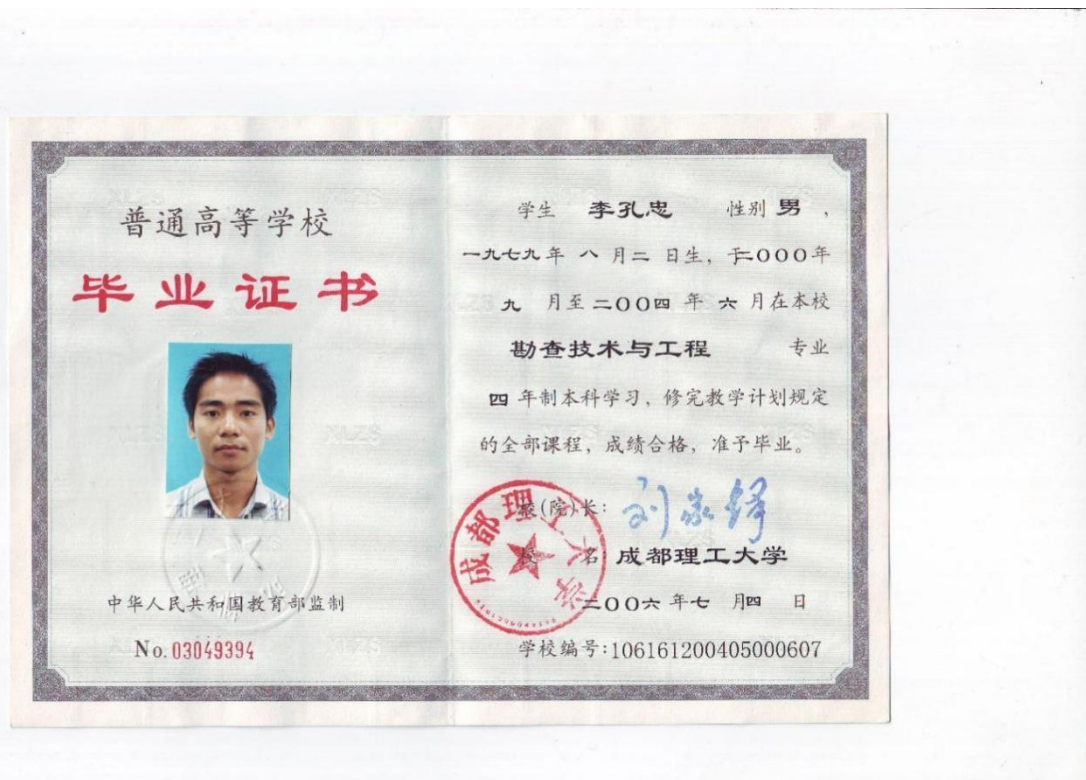 普通高等学校
毕业证书
中华人民共和国教育部监制
No. 03049394
学生 李孔忠 性别 男 ，
一九七九年 八 月二 日生，于二〇〇〇年
九 月至 二〇〇四 年 六 月在本校
勘查技术与工程 专业
四 年制本科学习，修完教学计划规定
的全部课程，成绩合格，准予毕业。
校(院)长：刘家铎
校 名：成都理工大学
二〇〇六 年七 月四 日
学校编号：106161200405000607
成都理工大学